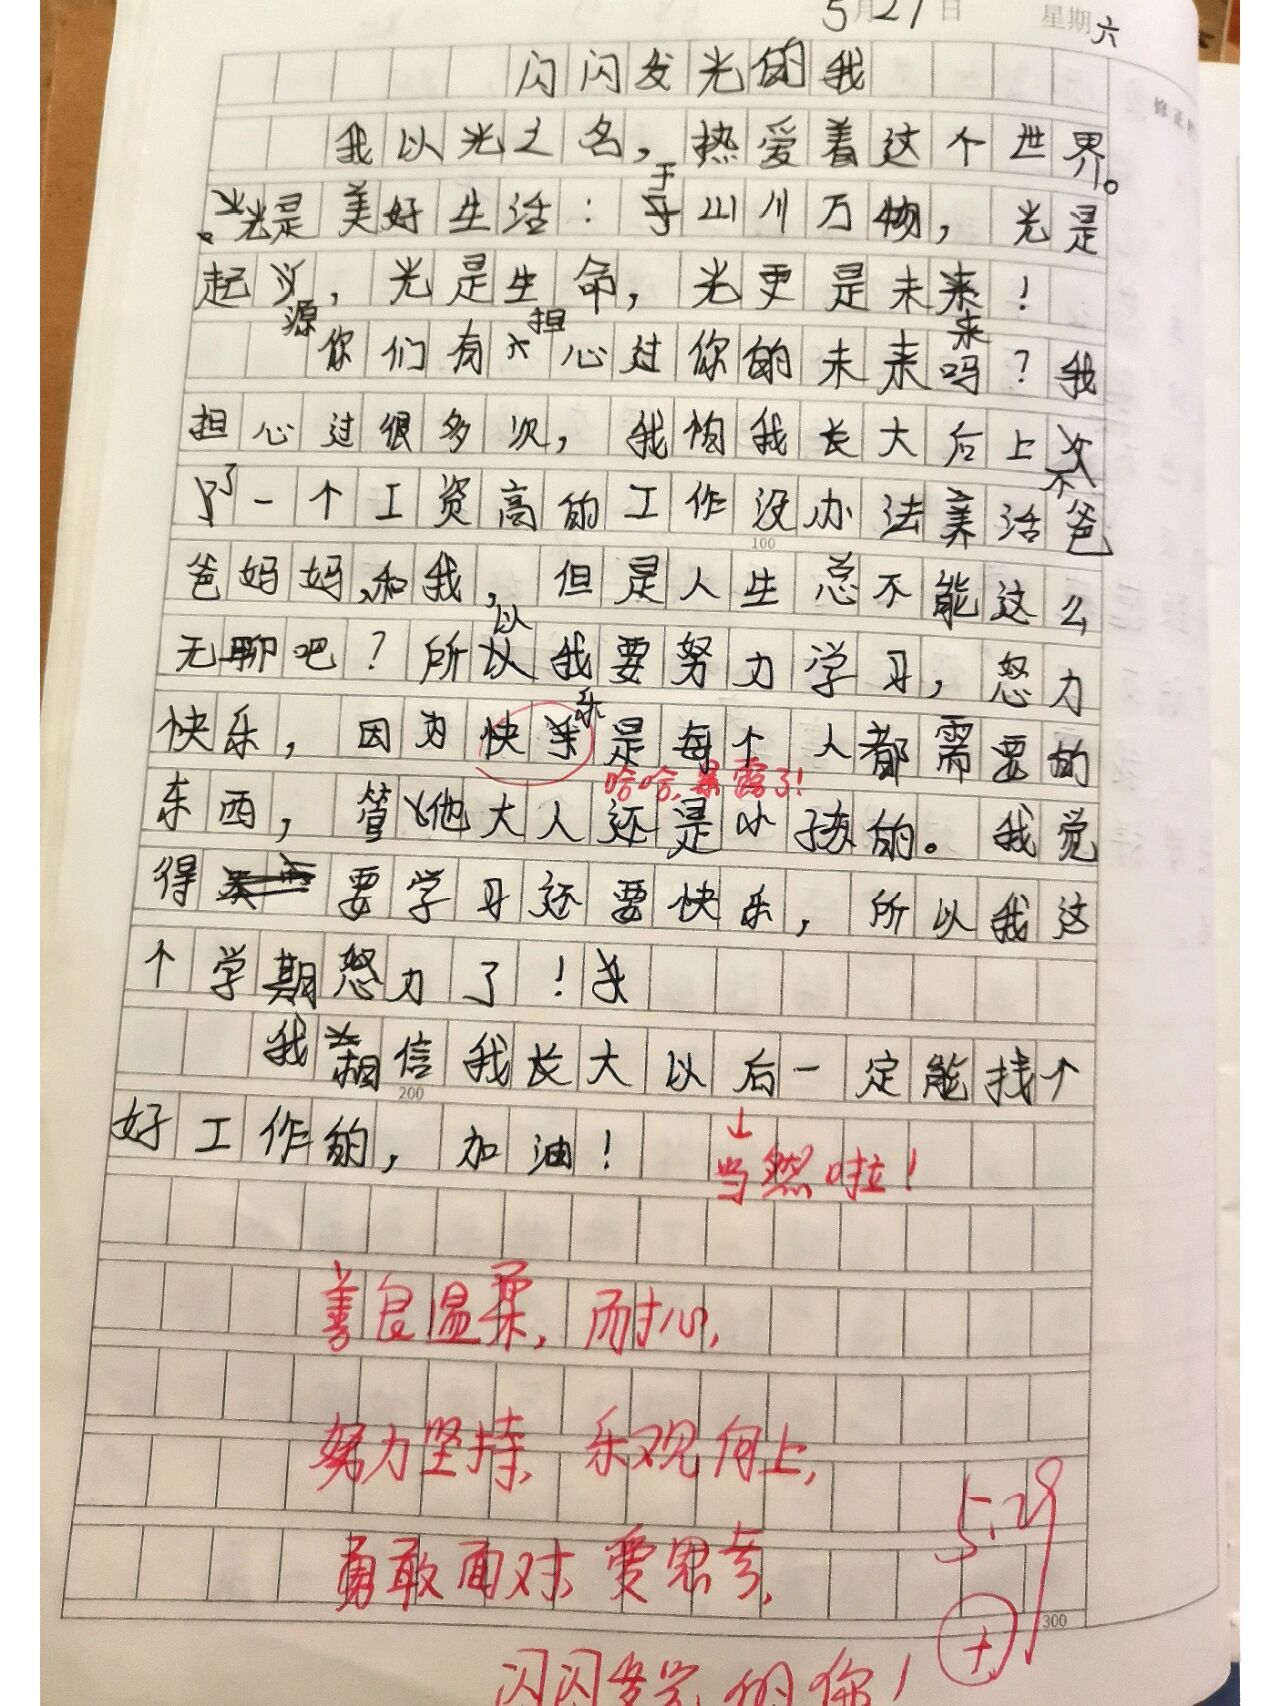 5月27日 星期六
闪闪发光的我
我以光之名，热爱着这个世界。
光是美好生活：于山川万物，光是
起源，光是生命，光更是未来！
你们有担心过你的未来吗？我
担心过很多次，我怕我长大后上不
了一个工资高的工作没办法养活爸
爸妈妈，和我，但是人生总不能这么
无聊吧？所以我要努力学习，怒力
快乐，因为快乐是每个人都需要的
哈哈，暴露了！
东西，管他大人还是小孩的。我觉
得要学习还要快乐，所以我这
个学期怒力了！
我相信我长大以后一定能找个
200
好工作的，加油！
当然啦！
善良温柔，耐心，
努力坚持，乐观向上，
勇敢面对，爱思考，
5.29
300
闪闪发光的你！